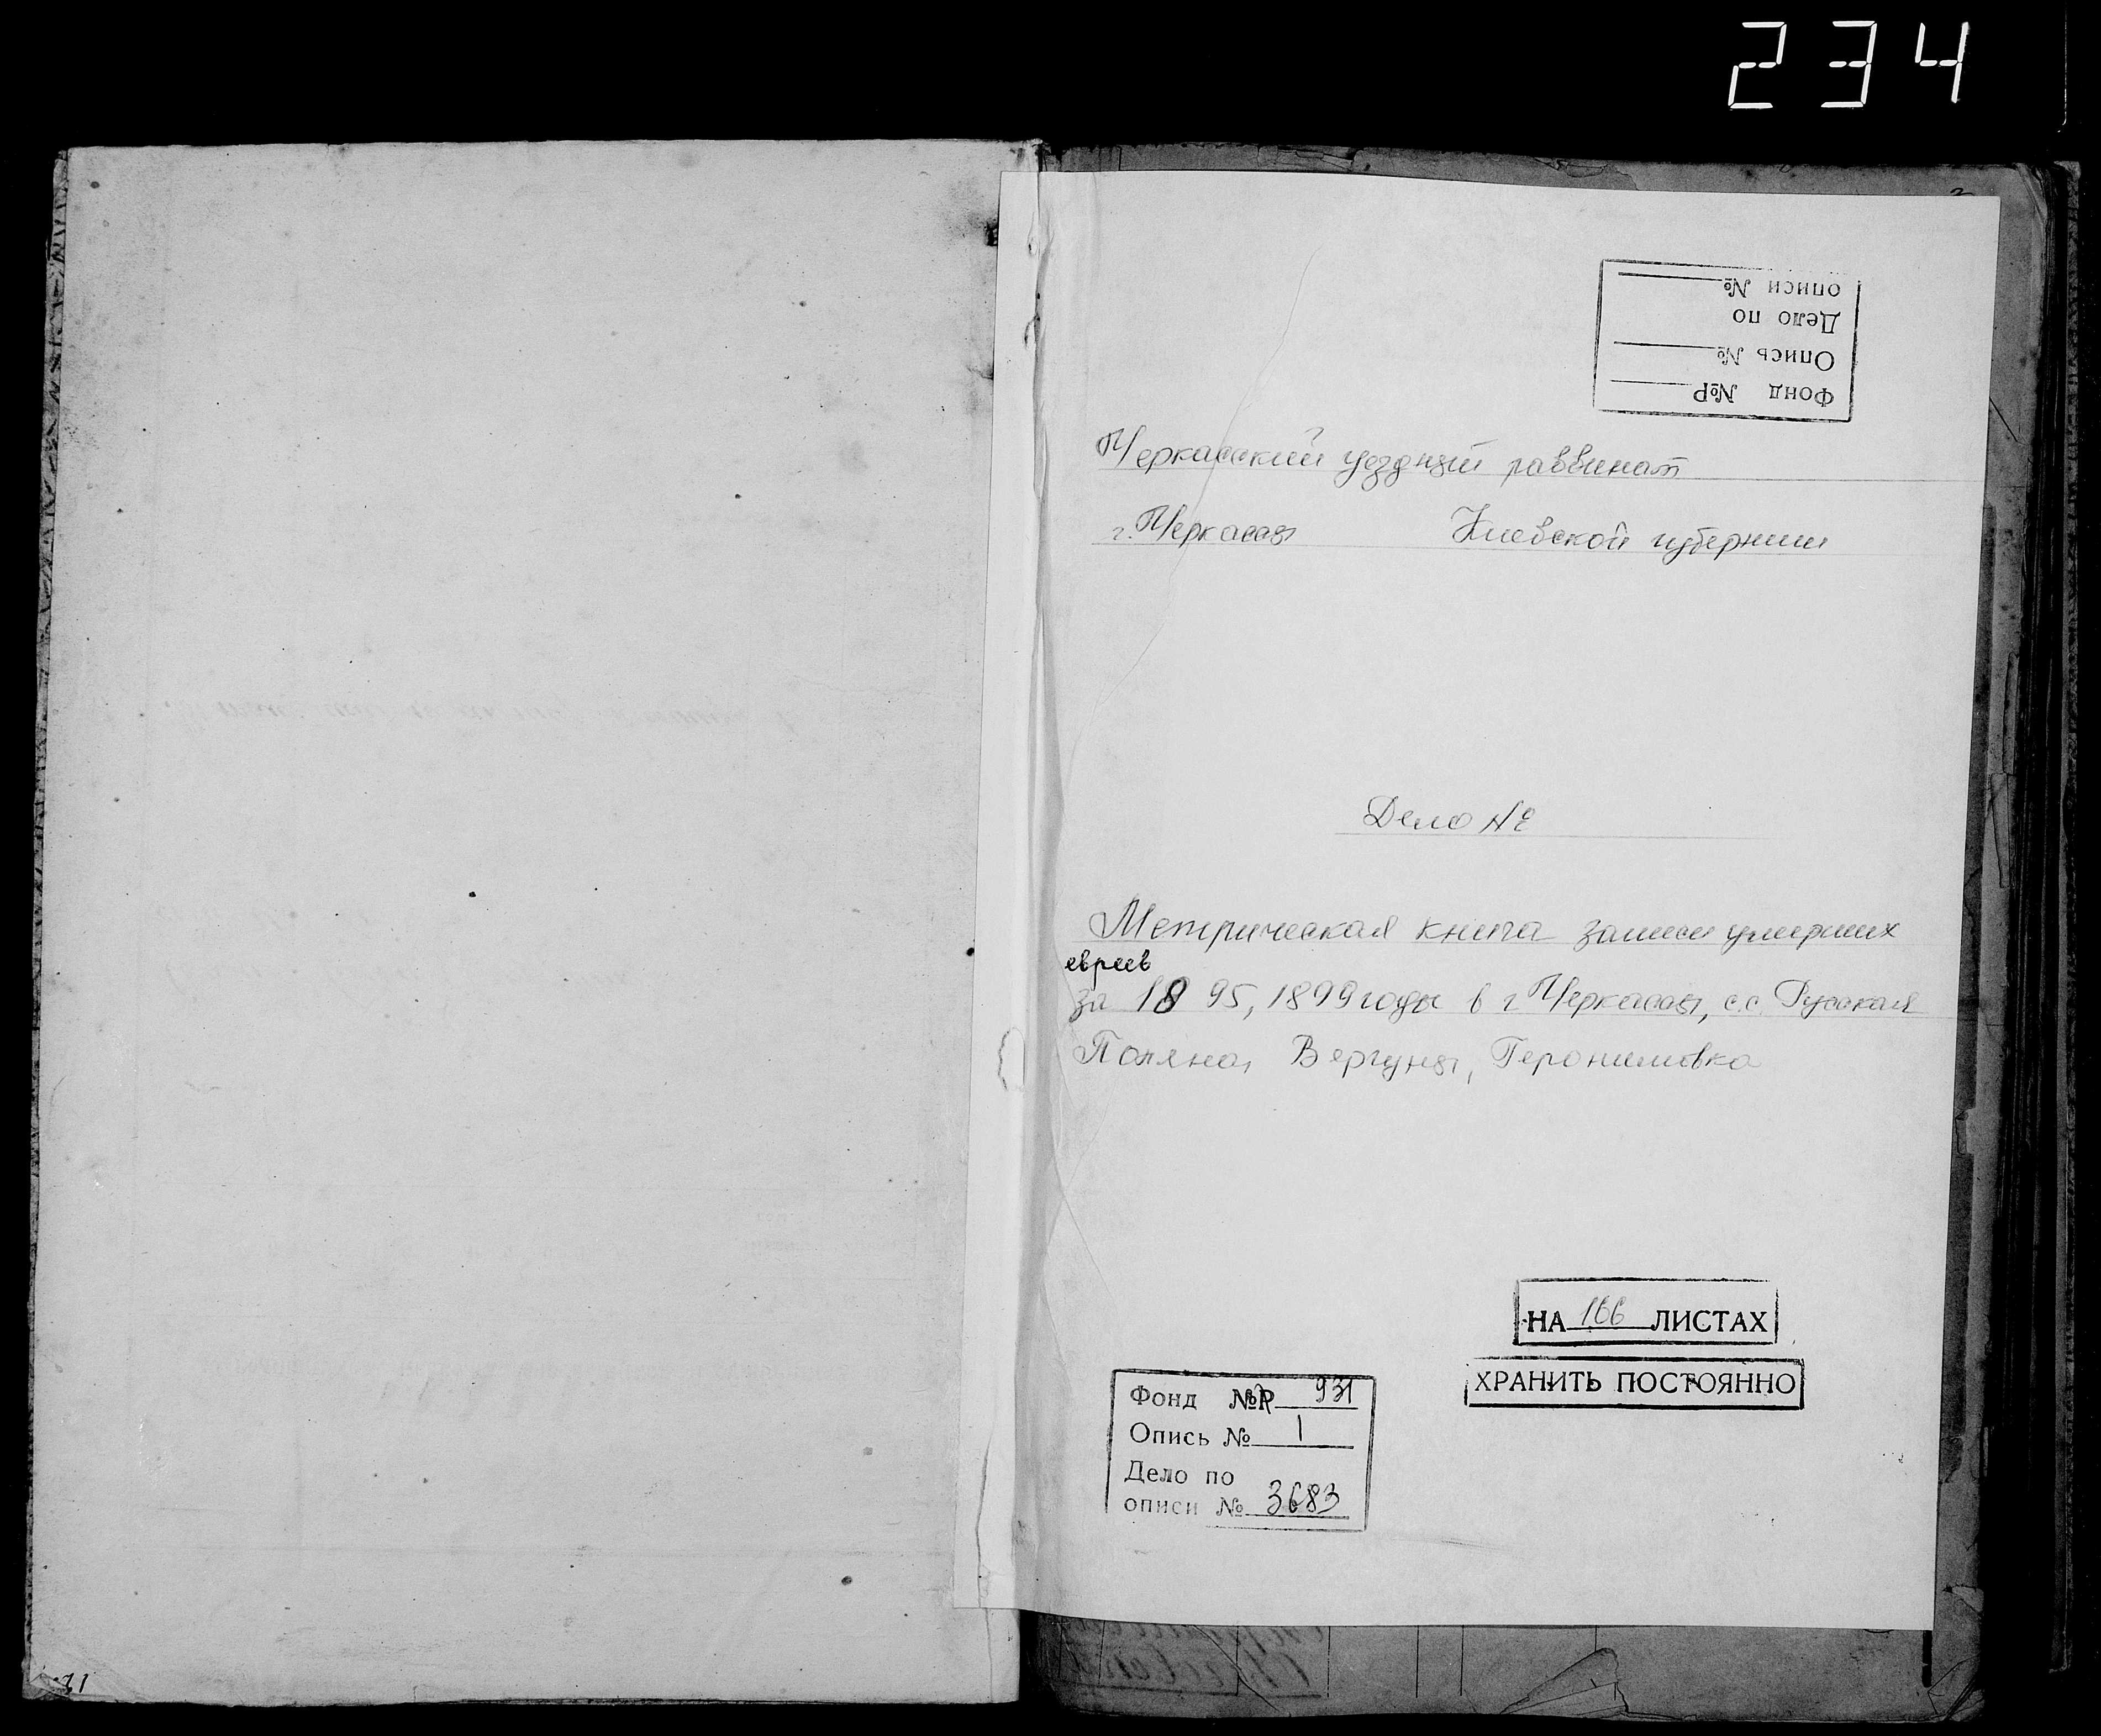 234
описи №
Дело по
Опись №
Фонд №Р
Черкасский уездный раввинат
г. Черкассы Киевской губернии
Дело №
Метрическая книга записи умерших
евреев
за 1895, 1899 годы в г Черкассы, с.с. Русская
Поляна, Вергуны, Геронимовка
НА 166 ЛИСТАХ
ХРАНИТЬ ПОСТОЯННО
Фонд №Р 931
Опись № 1
Дело по
описи № 3683